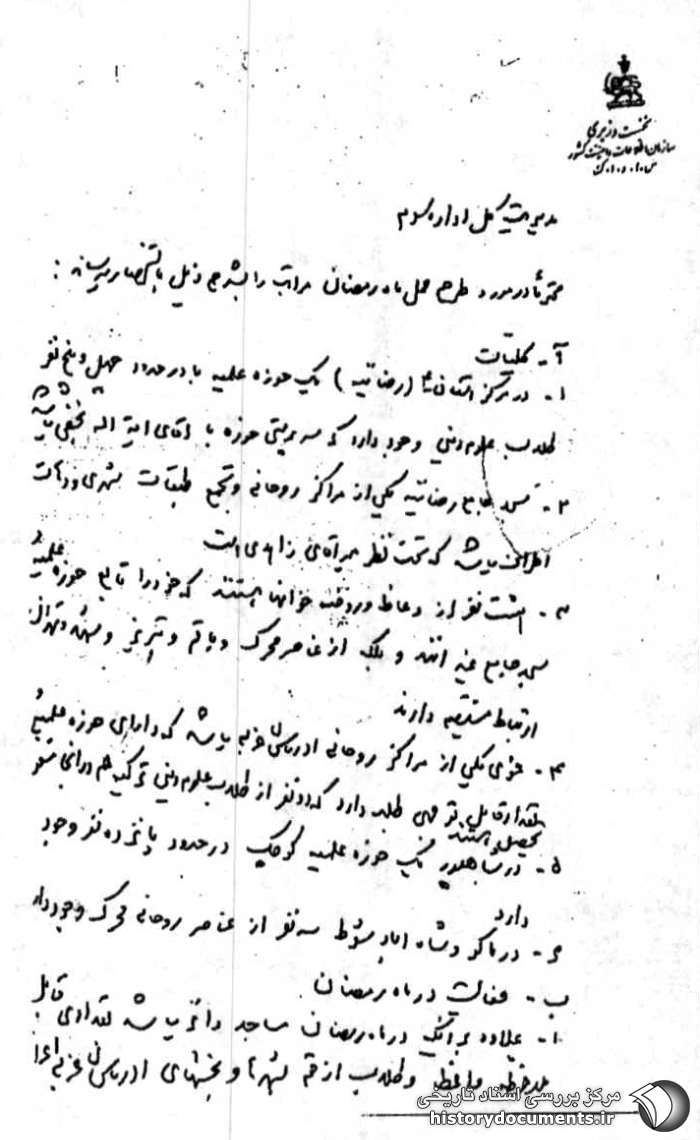 نخست وزیری
سازمان اطلاعات و امنیت کشور
مدیریت کل اداره سوم
محترماً در مورد طرح عمل ماه رمضان مراتب را بشرح ذیل باستحضار میرساند :
آ - کلیات
۱ - در مرکز استان (رضائیه) یک حوزه علمیه با در حدود چهل و پنج نفر
طلاب علوم دینی وجود دارد که سرپرستی حوزه با آقای آیة اله نجفی میباشد
۲ - مسجد جامع رضائیه یکی از مراکز روحانی و تجمع طبقات شهری و دهات
اطراف میباشد که تحت نظر میرآقای زاهدی است
۳ - هشت نفر از وعاظ و روضه خوانها هستند که خود را تابع حوزه علمیه
مسجد جامع میدانند و یک از عناصر محرک و با قم و تبریز و مشهد و تهران
ارتباط مستقیم دارند
۴ - خوی یکی از مراکز روحانی آذربایجان غربی میباشد که دارای حوزه علمیه
مقدار قابل توجهی طلبه دارد که دو نفر از طلاب علوم دینی ترکیه هم در آنجا مشغول
تحصیل هستند
۵ - در شاهپور یک حوزه علمیه کوچک در حدود پانزده نفر وجود
دارد
۶ - در ماکو و شاه آباد سه نفر از عناصر روحانی محرک وجود دارد
ب - فعالیت در ماه رمضان
۱ - علاوه بر آنکه در ماه رمضان مساجد دائر میباشد تعدادی قابل
ملاحظه واعظ و طلاب از قم بشهرها و بخشهای آذربایجان غربی اعزام
مرکز بررسی اسناد تاریخی
historydocuments.ir